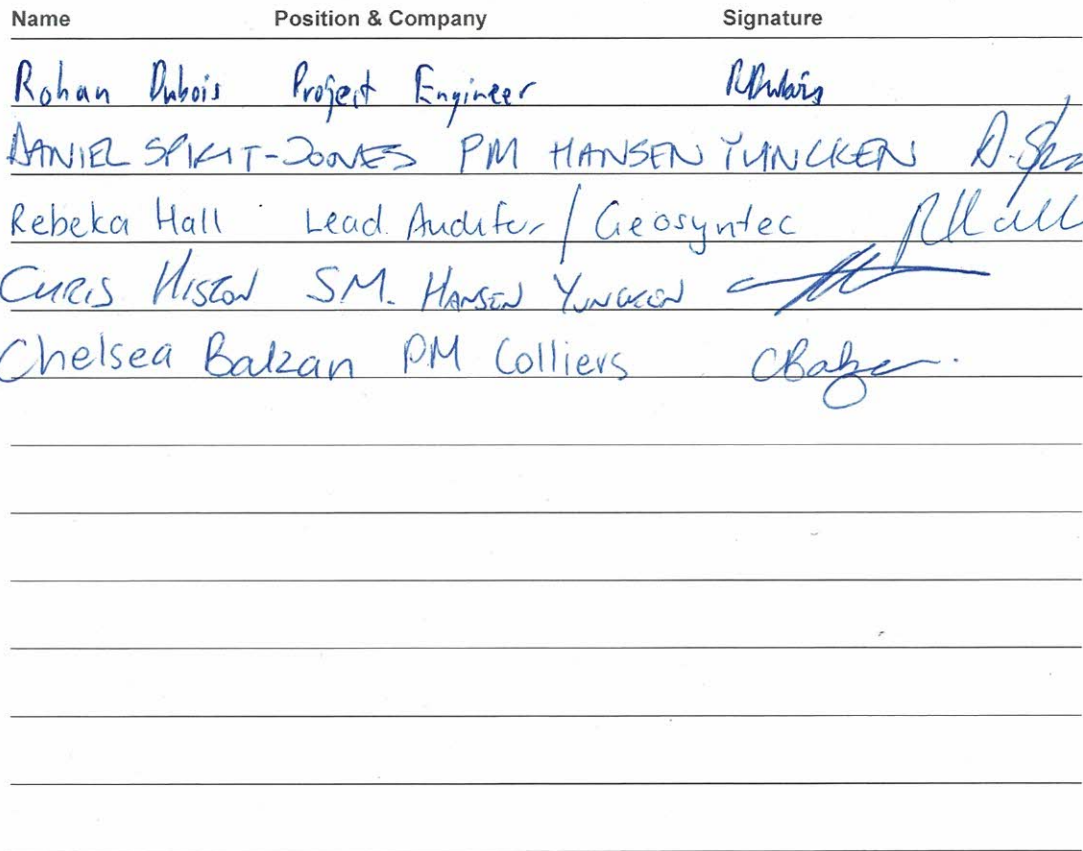 Name Position & Company Signature
Rohan Dubois Project Engineer RDubois
DANIEL SPIRIT-JOONES PM HANSEN YUNCKEN
Rebeka Hall Lead Auditor / Geosyntec RHall
CHRIS HISTON S.M. HANSEN YUNCKEN
Chelsea Balzan PM Colliers CBalzan.